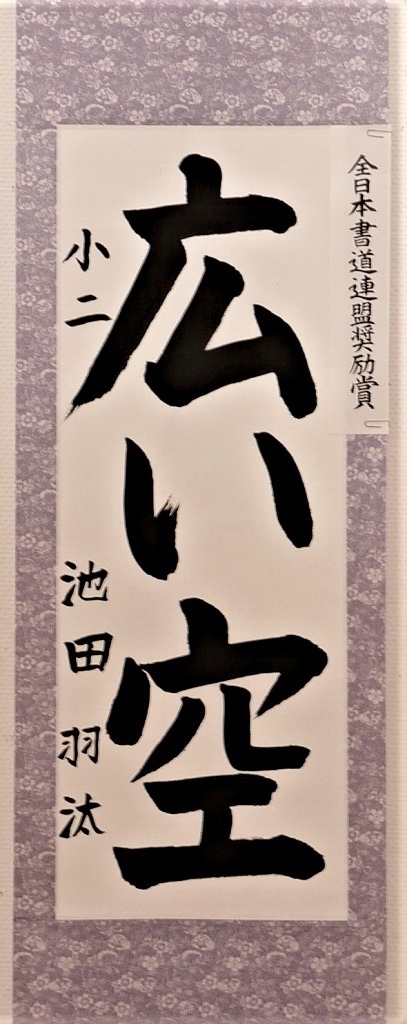 全日本書道連盟奨励賞
広い空
小二 池田羽汰